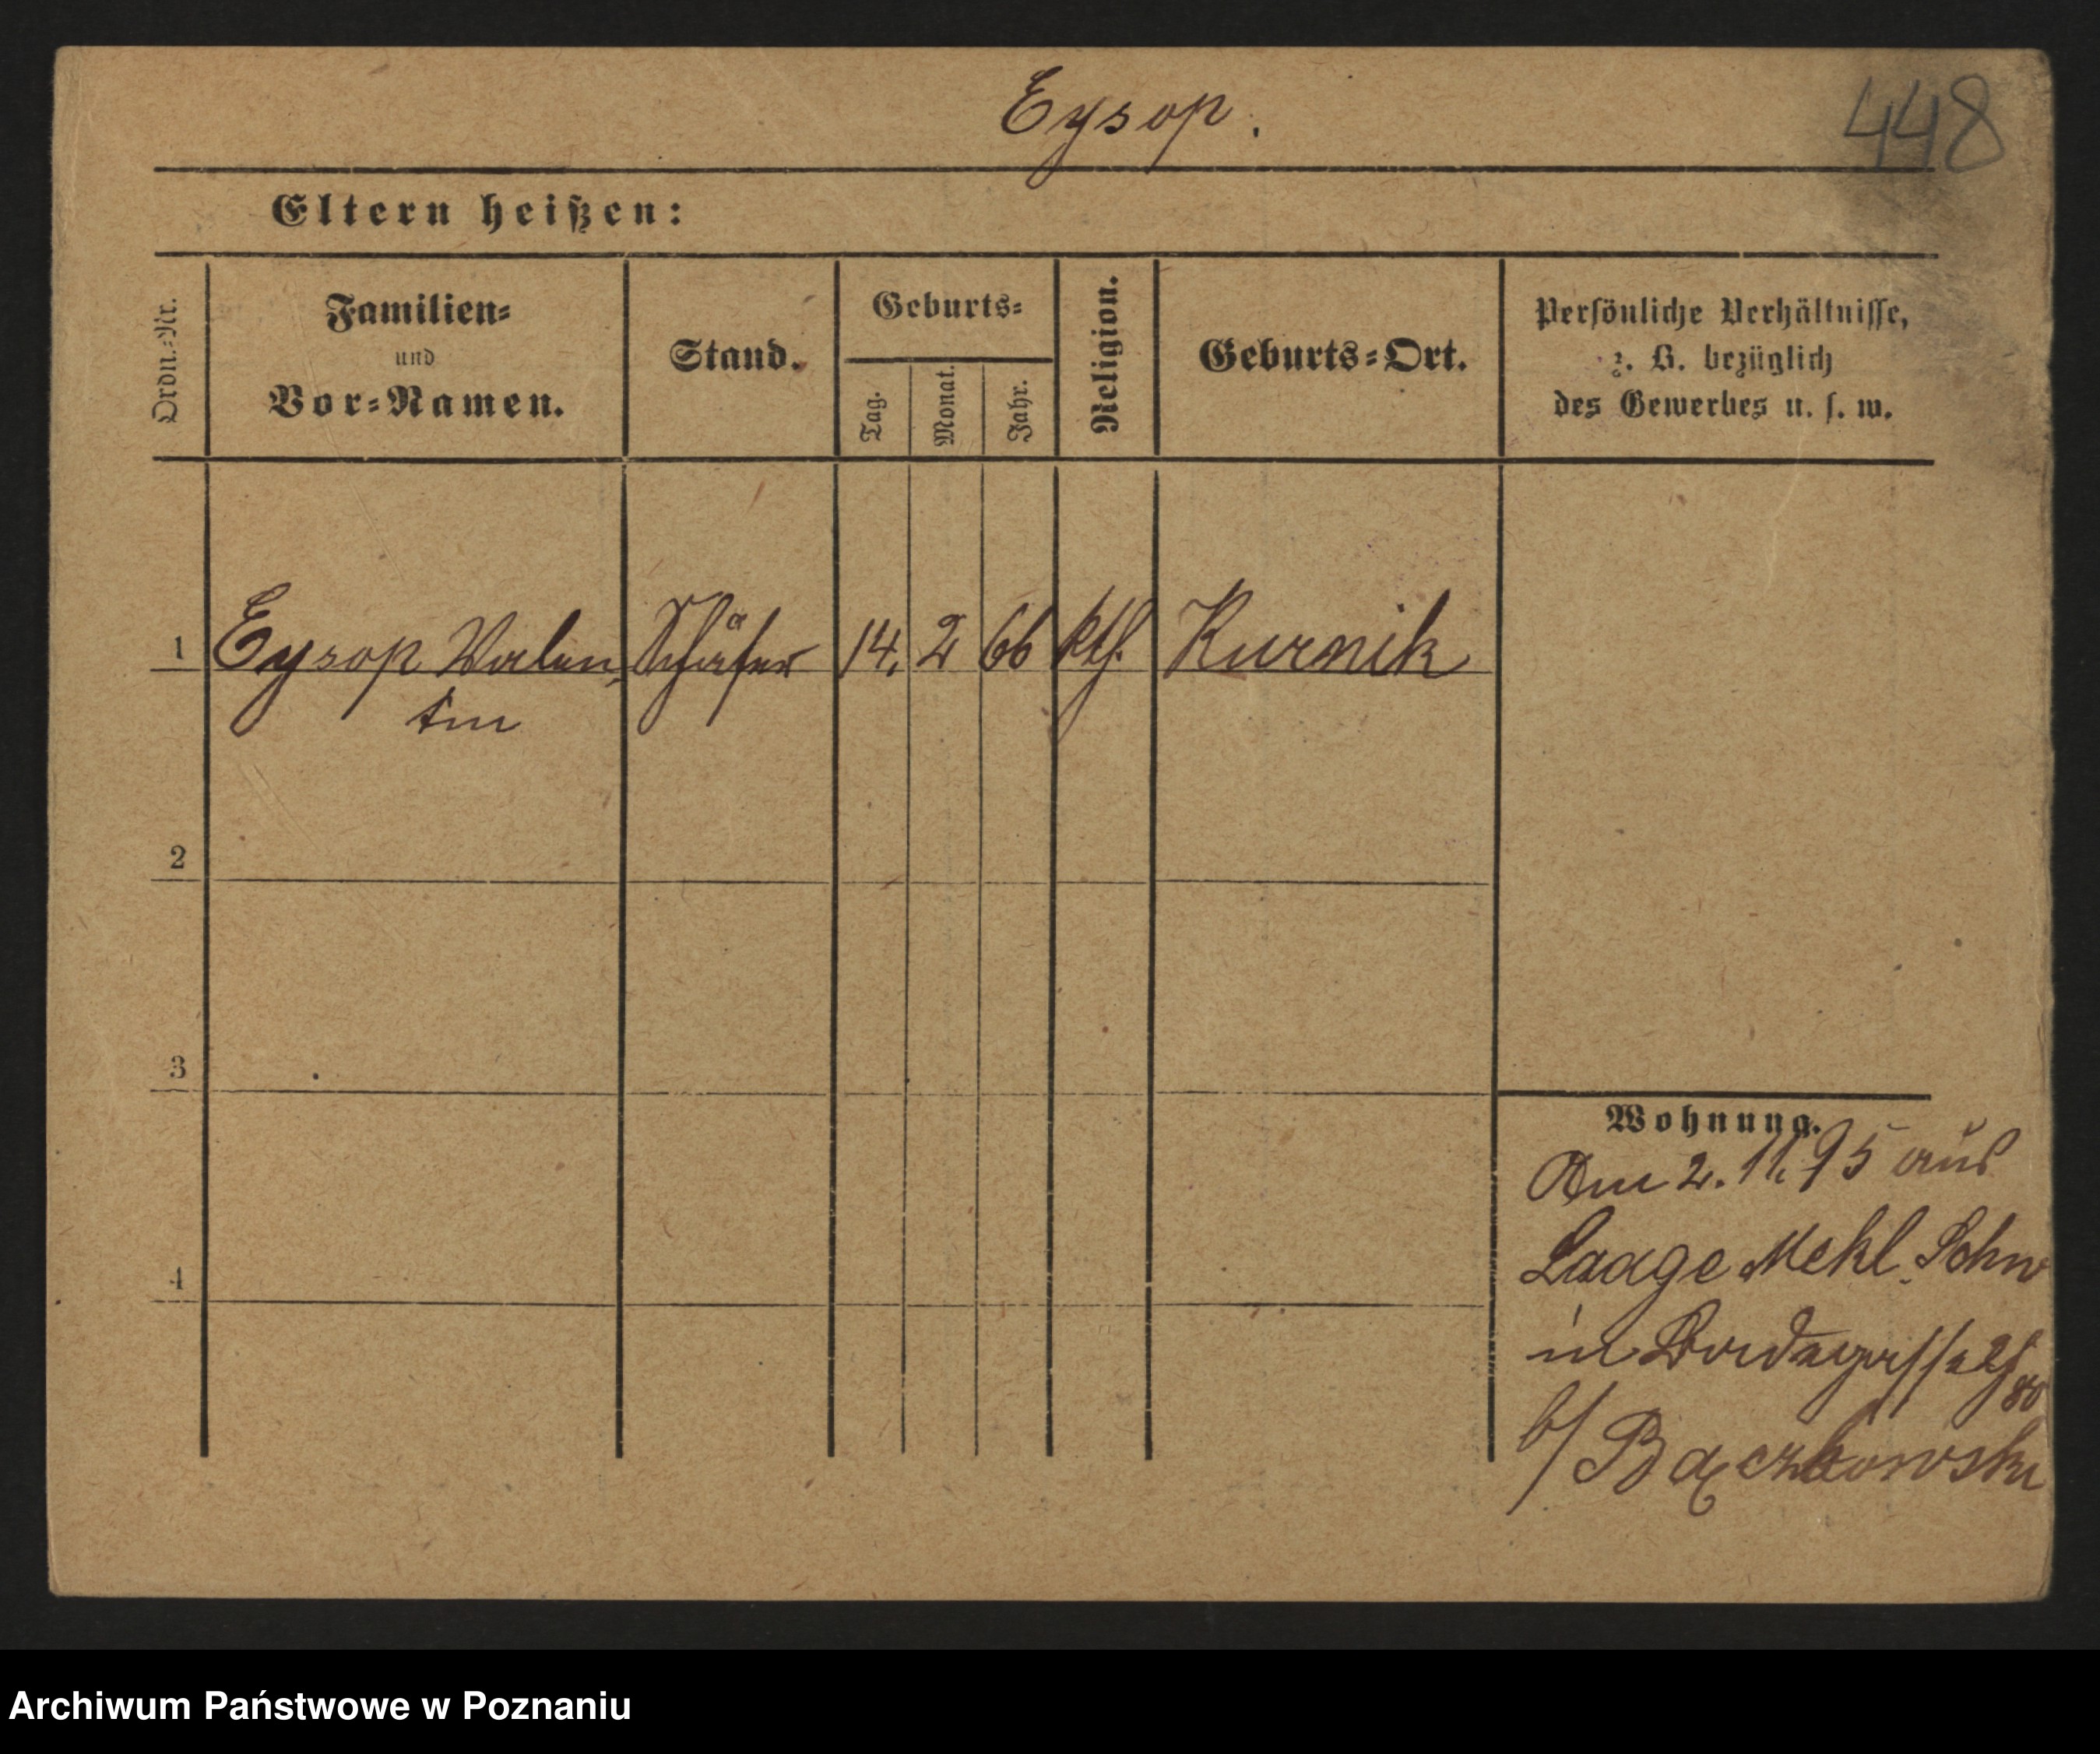 Eysop.
448
Eltern heißen:
Ordn.-Nr.
Familien-
und
Vor-Namen.
Stand.
Geburts-
Tag.
Monat.
Jahr.
Religion.
Geburts-Ort.
Persönliche Verhältnisse,
z. B. bezüglich
des Gewerbes u. s. w.
1 Eysop Valen- Schäfer 14. 2 66 kth. Kurnik
tin
2
3
4
Wohnung.
Am 2. 11. 95 aus
Laage Mekl. Schw
in
b/ Bączkowski
Archiwum Państwowe w Poznaniu